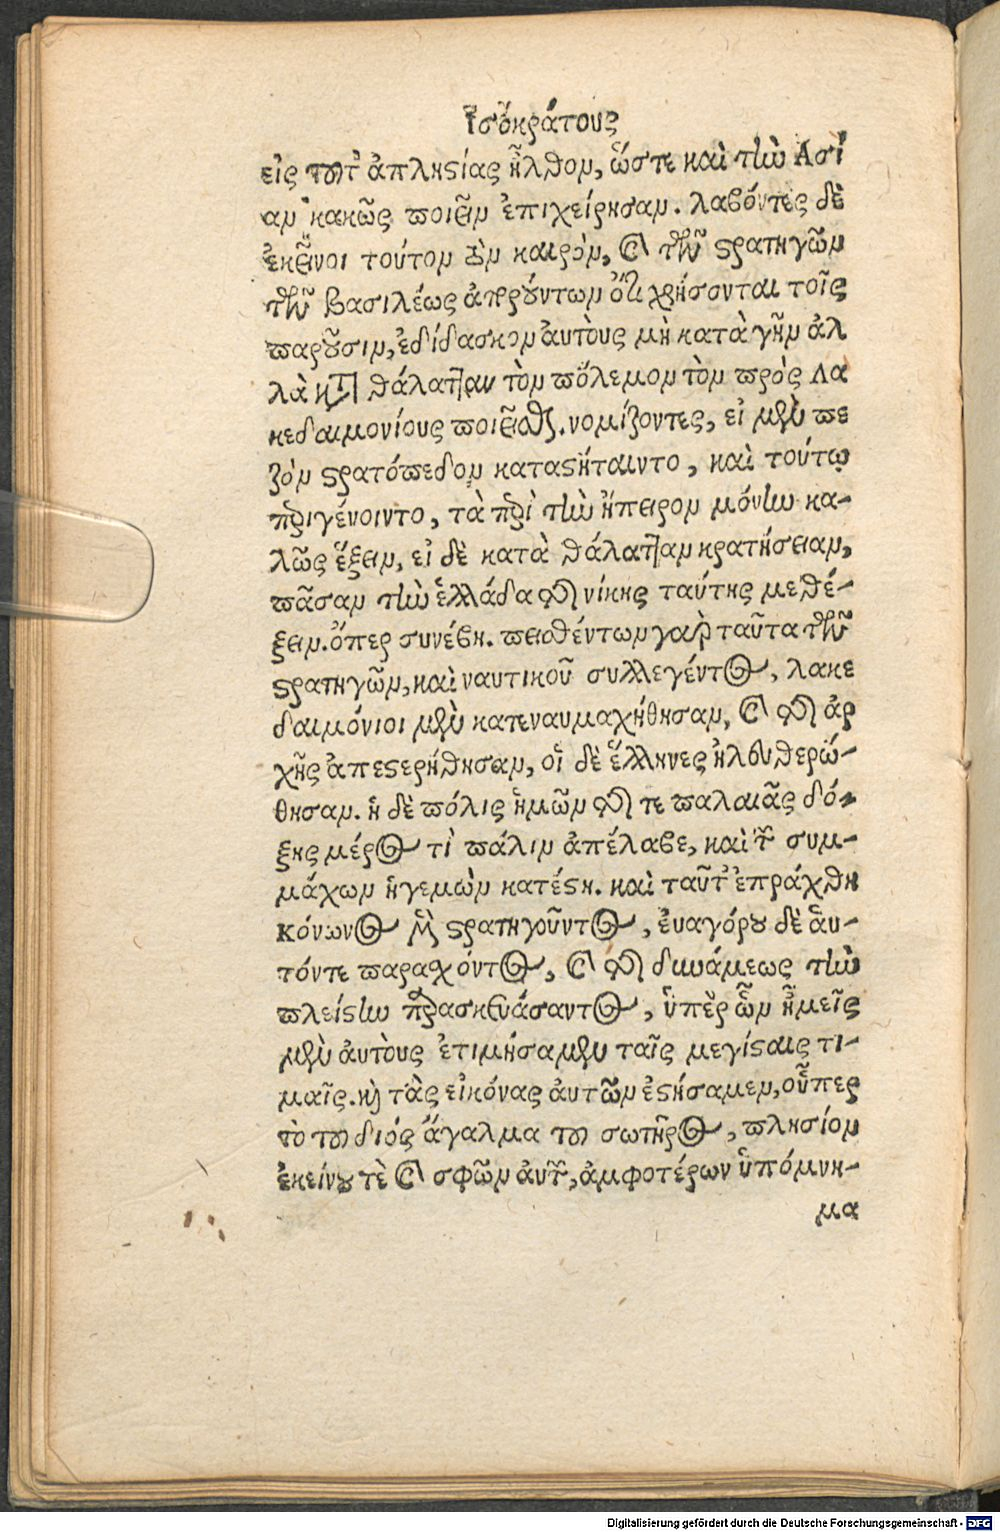 Ἰσοκράτους
εἰς τοῦτ' ἀπληστίας ἦλθον, ὥστε καὶ τὴν Ἀσί
αν κακῶς ποιεῖν ἐπιχείρησαν. λαβόντες δὲ
ἐκεῖνοι τούτον τὸν καιρὸν, καὶ τῶν στρατηγῶν
τῶν βασιλέως ἀπορούντων ὅτι χρήσονται τοῖς
παροῦσιν, ἐδίδασκον ἀυτοὺς μὴ κατὰ γῆν ἀλ
λὰ κατὰ θάλατταν τὸν πόλεμον τὸν πρὸς Λα
κεδαιμονίους ποιεῖσθαι. νομίζοντες, εἰ μὲν πε
ζὸν στρατόπεδον καταστήσαιντο, καὶ τούτῳ
περιγένοιντο, τὰ περὶ τὴν ἤπειρον μόνην κα-
λῶς ἕξειν, εἰ δὲ κατὰ θάλατταν κρατήσειαν,
πᾶσαν τὴν ἑλλάδα τῆς νίκης ταύτης μεθέ-
ξειν. ὅπερ συνέβη. πεισθέντων γὰρ ταῦτα τῶν
στρατηγῶν, καὶ ναυτικοῦ συλλεγέντος, λακε
δαιμόνιοι μὲν κατεναυμαχήθησαν, καὶ τῆς ἀρ
χῆς ἀπεστερήθησαν, οἱ δὲ ἕλληνες ἠλευθερώ-
θησαν. ἡ δὲ πόλις ἡμῶν τῆς τε παλαιᾶς δό-
ξης μέρος τὶ πάλιν ἀπέλαβε, καὶ τῶν συμ-
μάχων ἡγεμὼν κατέστη. καὶ ταῦτ' ἐπράχθη
Κόνωνος μὲν στρατηγοῦντος, ἐυαγόρου δὲ ἁυ-
τόν τε παρασχόντος, καὶ τῆς δυνάμεως τὴν
πλείστην παρασκευάσαντος, ὑπὲρ ὧν ἡμεῖς
μὲν ἀυτοὺς ἐτιμήσαμεν ταῖς μεγίσταις τι-
μαῖς. καὶ τὰς εἰκόνας ἀυτῶν ἐστήσαμεν, οὗπερ
τὸ τοῦ διός ἄγαλμα τοῦ σωτῆρος, πλησίον
ἐκείνου τὲ καὶ σφῶν ἀυτῶν, ἀμφοτέρων ὑπόμνη-
μα
Digitalisierung gefördert durch die Deutsche Forschungsgemeinschaft - DFG